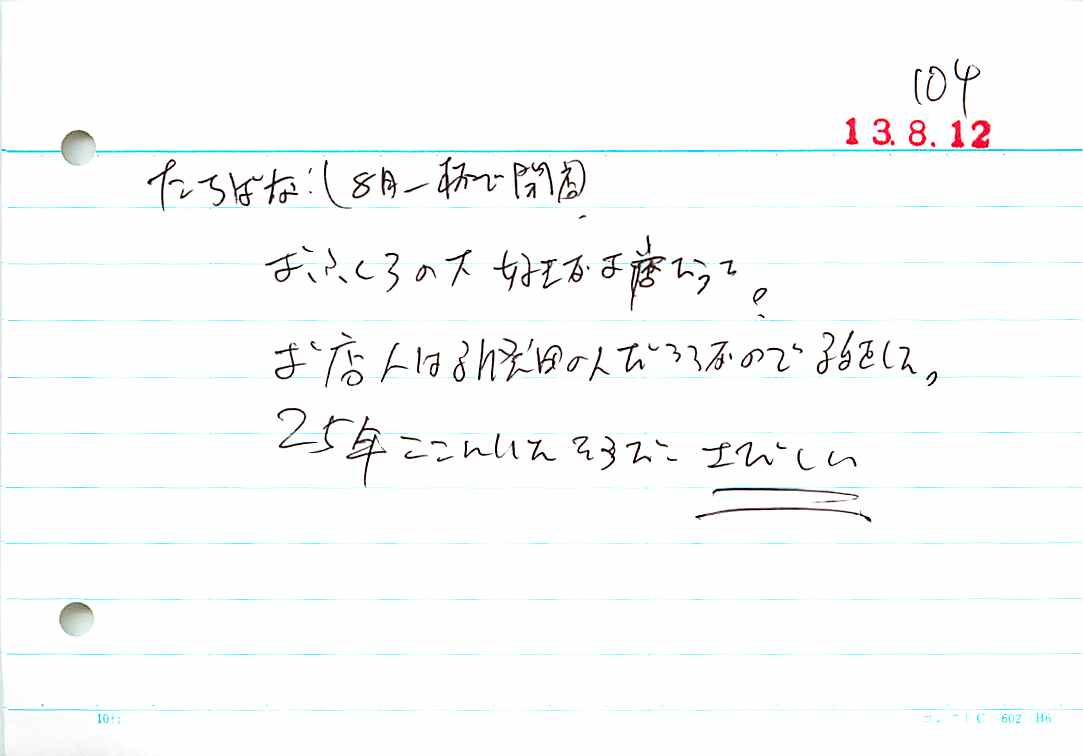 104
13.8.12
たちばな:(8月一杯で閉店)
おふくろの大好きなお店だって?
お店人は 田の人だろうなので して、
25年ここにいたそうだ さびしい
C -602 B6